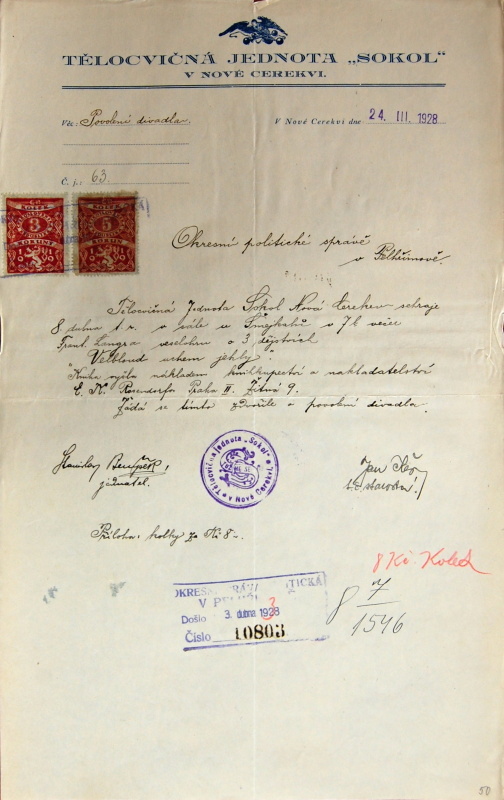 TĚLOCVIČNÁ JEDNOTA „SOKOL“
V NOVÉ CEREKVI.
Věc: Povolení divadla.
V Nové Cerekvi dne 24. III. 1928
Č. j.: 63.
3
5
Okresní politické správě
v Pelhřimově.
Tělocvičná Jednota Sokol Nová Cerekev sehraje
8 dubna t. r. v sále u v 7 h večer
Frant. Langra veselohru o 3 dějstvích
"Velbloud uchem jehly".
Kniha vyšla nákladem knihkupectví a nakladatelství
E. K. Rosendorfa Praha II. Žitná 9.
Žádá se tímto zdvořile o povolení divadla.
Stanislav
jednatel.
Tělocvičná jednota „Sokol“ v Nové Cerekvi.
Jan
t. č. starosta.
Příloha: kolky za Kč 8-.
8 Kč Kolek
OKRESNÍ POLITICKÁ
V
Došlo 3. dubna 1928
3
Číslo 10803
8 7
1546
50